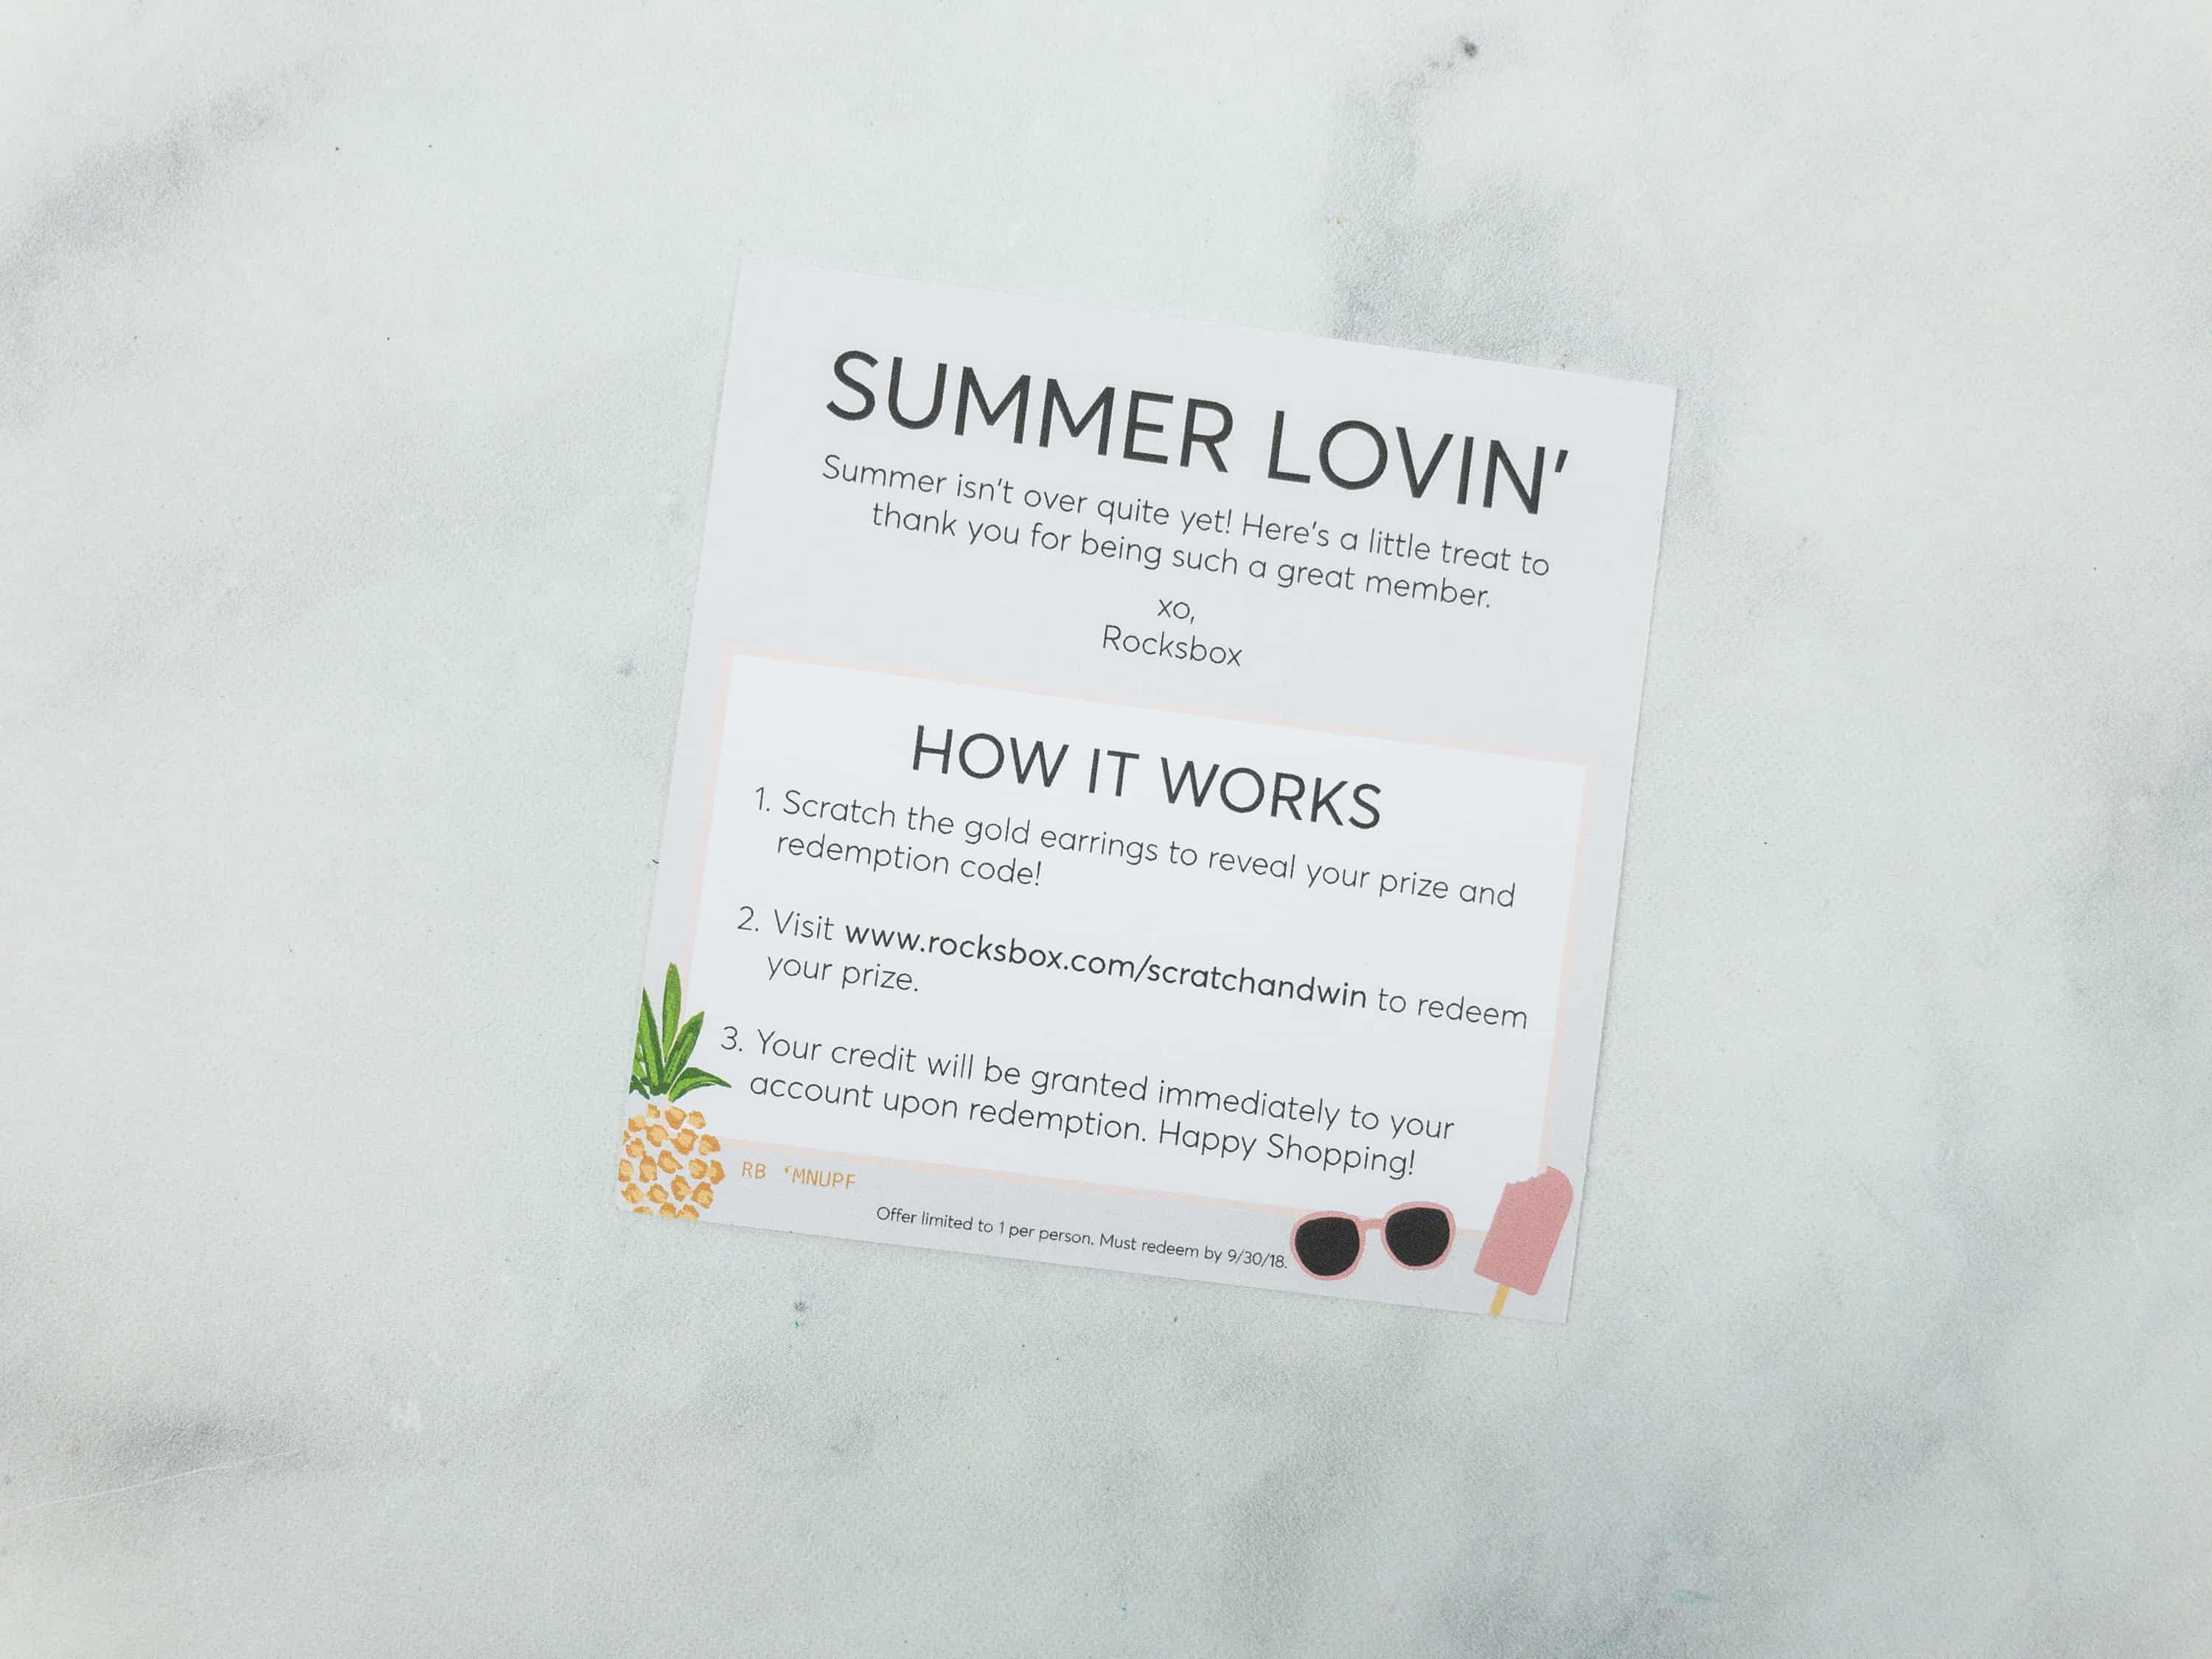 SUMMER LOVIN'
Summer isn't over quite yet! Here's a little treat to
thank you for being such a great member.
xo,
Rocksbox
HOW IT WORKS
1. Scratch the gold earrings to reveal your prize and
redemption code!
2. Visit www.rocksbox.com/scratchandwin to redeem
your prize.
3. Your credit will be granted immediately to your
account upon redemption. Happy Shopping!
RB ‘MNUPF
Offer limited to 1 per person. Must redeem by 9/30/18.